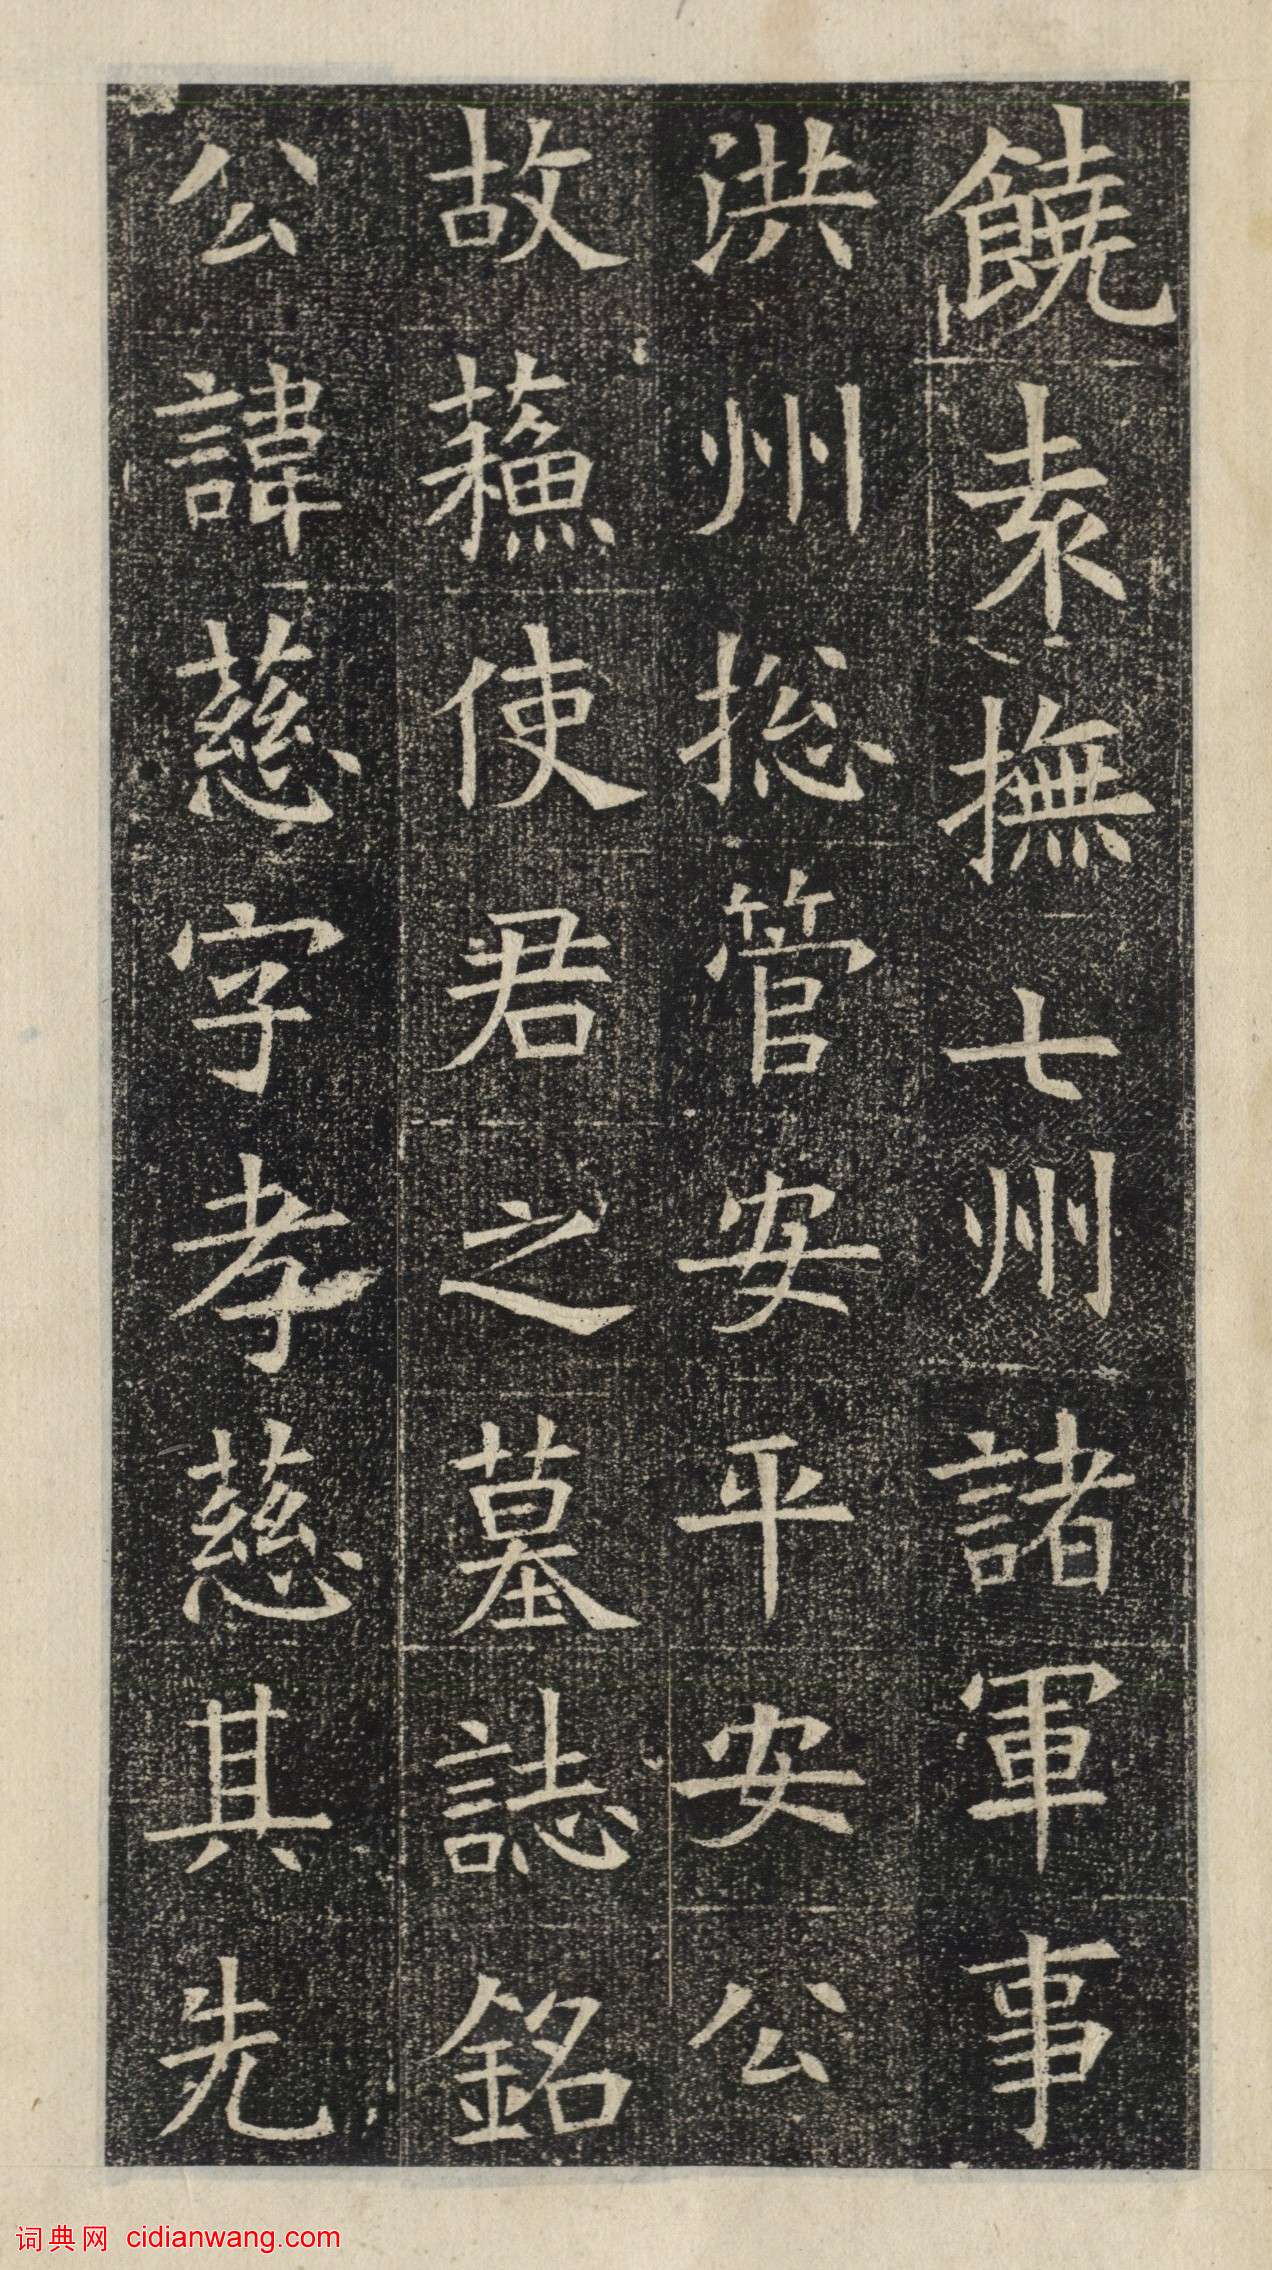 饒袁撫七州諸軍事
洪州捴管安平安公
故蘓使君之墓誌銘
公諱慈字孝慈其先
词典网 cidianwang.com